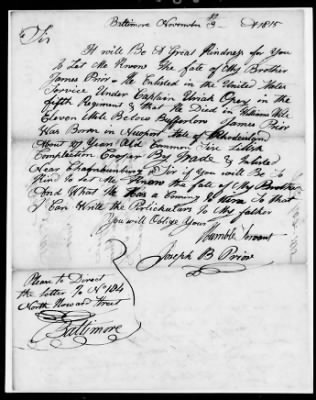 Baltimore November 3th AD 1815
Sir
It will Be A Great Kindness for You
To Let Me Know The fate of My Brother
James Prior He Enlisted in the United States
Service Under Captain
fifth Regiment & that He Died in Williams Vile
Eleven Mile Below Bufforlow James Prior
Was Born in Newport State of Rhodeisland
About 27 Year Old Common Size
Complection Cooper By Traid & Inlisted
Near Sir if you will Be So
Kind To Let Me Know the fate of My Brother
And What He Has a Coming to Him So that
I Can Write the Polickaters To My father
You will Oblige Your
Humble Servant
Joseph B Prior
Please to Direct
the Letter To No 104
North Howard Street
Baltimore